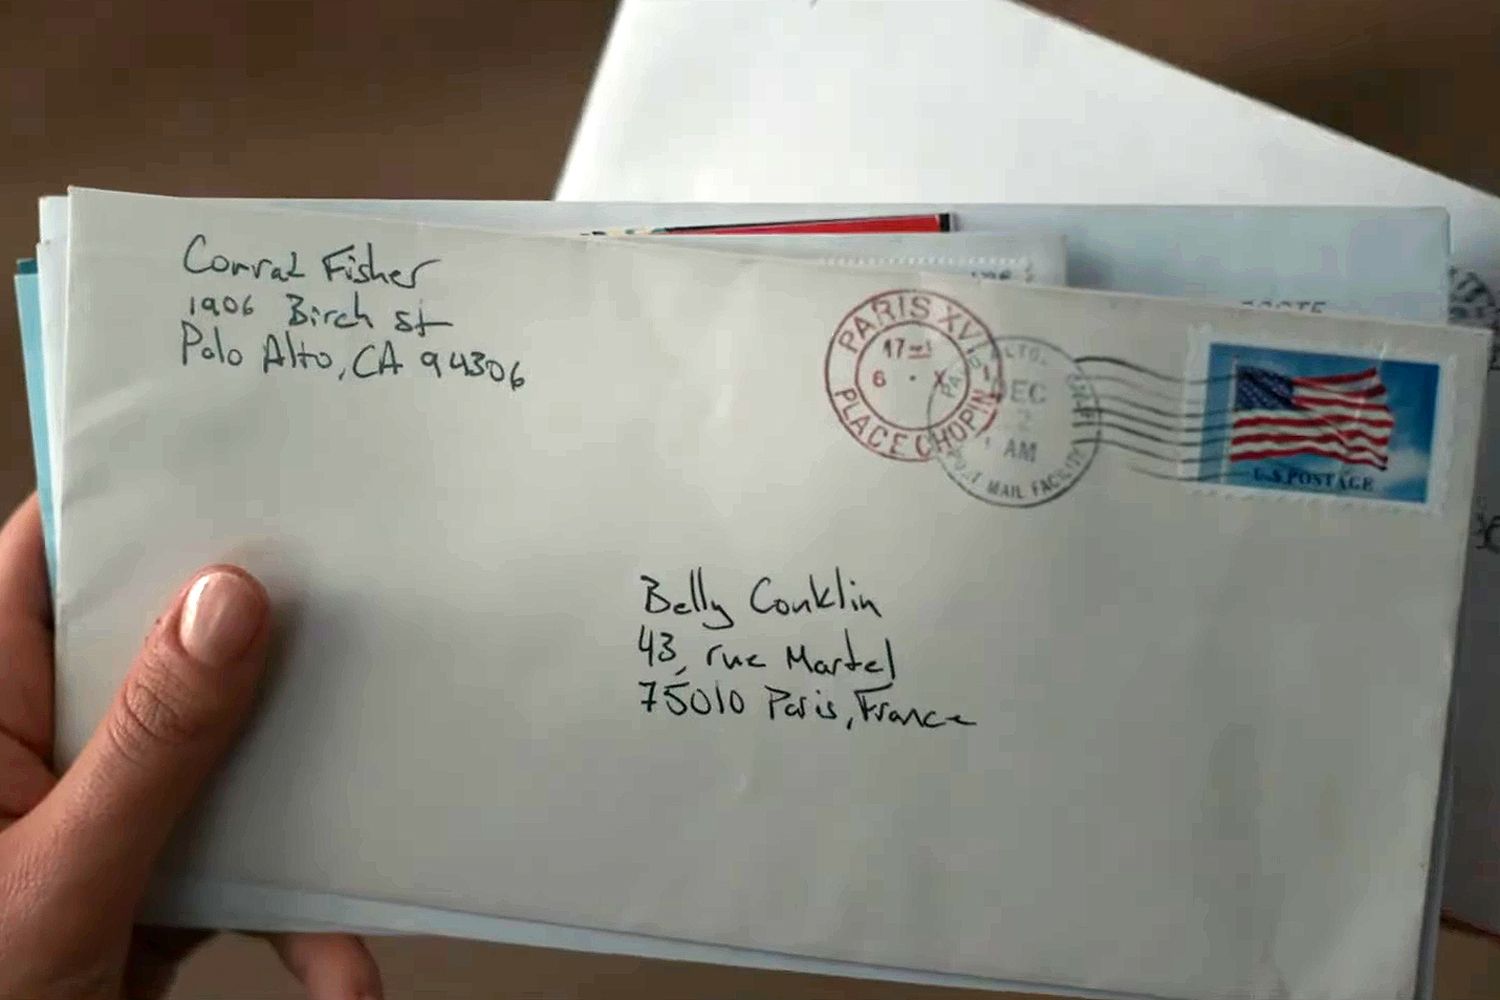 Conrad Fisher
1906 Birch st
Palo Alto, CA 94306
PARIS XVI
17
6 . X
PLACE CHOPIN
AM
MAIL FACILITY
U.S. POSTAGE
Belly Conklin
43, rue Martel
75010 Paris, France